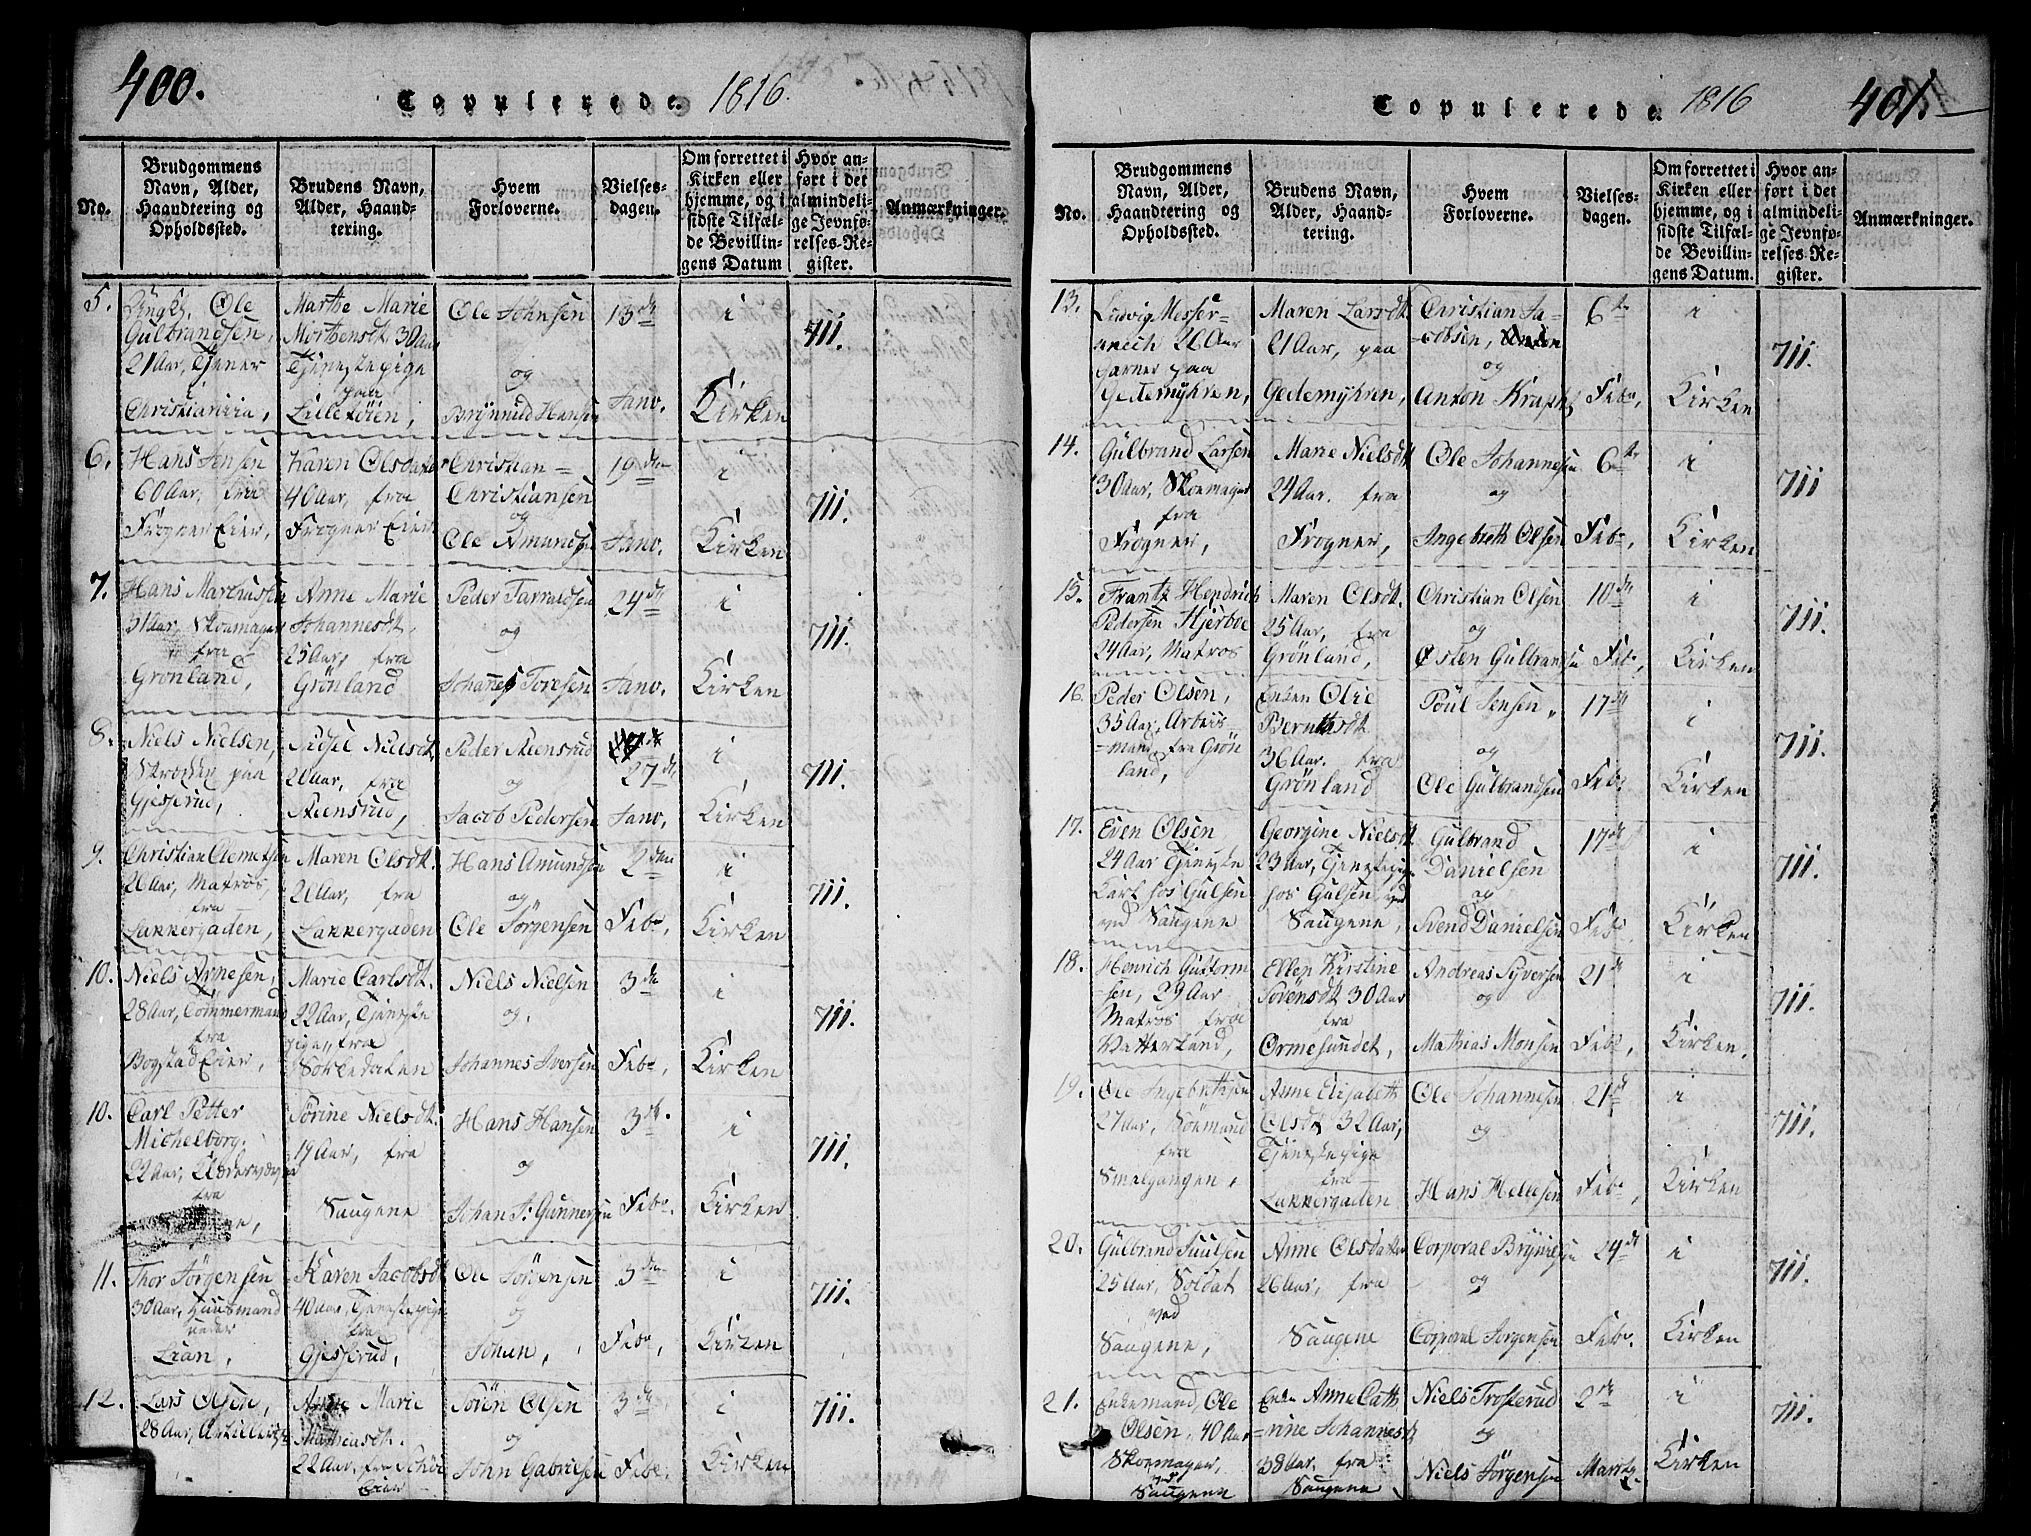 400.
Copulerede. 1816.
No.
Brudgommens Navn, Alder, Haandtering og Opholdssted.
Brudens Navn, Alder, Haandtering.
Hvem Forloverne.
Vielsesdagen.
Om forrettet i Kirken eller hjemme, og i sidste Tilfælde Bevillingens Datum
Hvor anført i det almindelige Jevnførelses-Register.
Anmærkninger.
5.
Ungk. Ole
Gulbrandsen,
21 Aar, Tjener
i
Christiania,
Marthe Marie
Mortensdt. 30 Aar
Tjenestepige
paa
Lilletöien,
Ole Johnsen
og
Brynnild Hansen
13de
Janv.
i
Kirken
711.
6.
Hans Jensen
60 Aar, fra
Frogner Eier,
Karen Olsdatter
40 Aar, fra
Frogner Eier
Christian
Christiansen
og
Ole Amundsen
19den
Janv.
i
Kirken
711.
7.
Hans Marthiussen
31 Aar, Skoemager
fra
Grönland,
Anne Marie
Johannesdt.
25 Aar, fra
Grönland
Peder Tarraldsen
og
Johannes Toresen
24de
Janv.
i
Kirken
711.
8.
Niels Nielsen,
paa
Gjesserud,
Sidsel Nielsdt.
20 Aar, fra
Steensrud,
Peder Steensrud
og
Jacob Pedersen
27de
Janv.
i
Kirken
711.
9.
Christian Clemetsen
26 Aar, Matros,
fra
Lakkergaden,
Maren Olsdt.
21 Aar, fra
Lakkergaden
Hans Amundsen
og
Ole Jörgensen
2den
Febr,
i
Kirken
711.
10.
Niels Arnesen,
28 Aar, Tömmermand
fra
Bogstad Eier,
Marie Carlsdt.
22 Aar, Tjeneste
pige, fra
Sörkedalen
Niels Nielsen
og.
Johannes Iversen
3de
Febr,
i
Kirken
711.
10.
Carl Petter
Michelborg.
22 Aar,
fra
Sörine Nielsdt.
19 Aar, fra
Saugene
Hans Hansen
og
Johan J: Gunnersen
3de.
Febr.
i
Kirken
711.
11.
Thor Jörgensen
30 Aar, Huusmand
under
Lian,
Karen Jacobsdt.
40 Aar, Tjenestepige
fra
Gjesserud,
Ole Jörgensen
og
Johan,
3den
Febr,
i
Kirken
711.
12.
Lars Olsen,
28 Aar,
Anne Marie
Mathiasdt.
22 Aar, fra
Eier
Sören Olsen
og
John Gabrielsen
3de
Febr.
i
Kirken
711.
Copulerede. 1816
401.
No.
Brudgommens Navn, Alder, Haandtering og Opholdssted.
Brudens Navn, Alder, Haandtering.
Hvem Forloverne.
Vielsesdagen.
Om forrettet i Kirken eller hjemme, og i sidste Tilfælde Bevillingens Datum.
Hvor anført i det almindelige Jevnførelses-Register.
Anmærkninger.
13.
Ludvig Messer-
26 Aar
paa
Gedemyhren,
Maren Larsdt.
21 Aar, paa
Gedemyhren,
Christian Ja-
cobsen,
og
Anton Krapht
6te
Febr,
i
Kirken
711.
14.
Gulbrand Larsen
30 Aar, Skoemager
fra
Frogner,
Marie Nielsdt.
24 Aar. fra
Frogner,
Ole Johannesen
og
Ingebreth Olsen
6te
Febr,
i
Kirken
711
15.
Frantz Hendrich
Pedersen Hjerboe
24 Aar, Matros
Maren Olsdt.
25 Aar, fra
Grönland,
Christian Olsen
og
Östen Gulbransen
10de
Febr,
i
Kirken
711.
16.
Peder Olsen,
35 Aar, Arbeids-
mand, fra Grön
land,
Enken Olie
Berntsdt.
36 Aar. fra
Grönland
Poul Jensen
og
Ole Gulbrandsen
17de
Febr.
i
Kirken
711.
17.
Even Olsen
24 Aar Tjeneste
karl hos Gulsen
ved Saugene
Georgine Nielsdt.
23 Aar, Tjenestepige
hos Gulsen, ved
Saugene,
Gulbrand
Danielsen
og
Svend Danielsen
17de
Febr
i
Kirken
711.
18.
Henrich Guttorm
sen, 29 Aar
Matros fra
Vatterland,
Ellen Kirstine
Sörensdt. 30 Aar
fra
Ormesundet,
Andreas Syversen
og
Mathias Monsen
21de
Febr,
i
Kirken.
711.
19.
Ole Ingebrethsen
27 Aar, Söemand
fra
Smalgangen,
Anne Elisabeth
Olsdt. 32 Aar,
Tjenestepige
fra
Lakkergaden
Ole Johannesen
og
Hans Hellesen
21de
Febr,
i
Kirken
711.
20.
Gulbrand Juulsen
25 Aar, Soldat
ved
Saugene,
Anne Olsdatter
26 Aar, fra
Saugene
Corporal Brynielsen
og
Corporal Jörgensen
24de
Febr.
i
Kirken
711.
21.
Enkemand, Ole
Olsen, 40 Aar
Skoemager,
ved
Saugene
Enken Anne Cath
rine Johannesdt.
38 Aar. fra
Saugene
Niels Trosterud
og
Niels Jörgensen
2de
Martz.
i
Kirken
711.